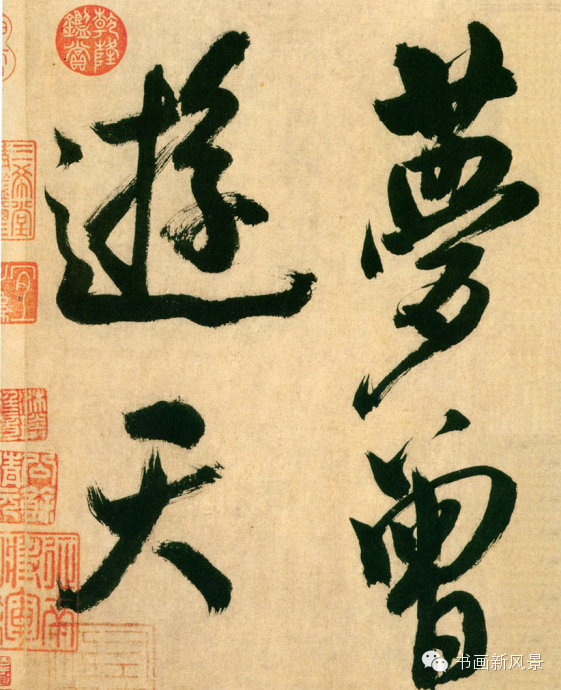 夢曾
遊天
乾隆
鑑賞
三希堂
书画新风景